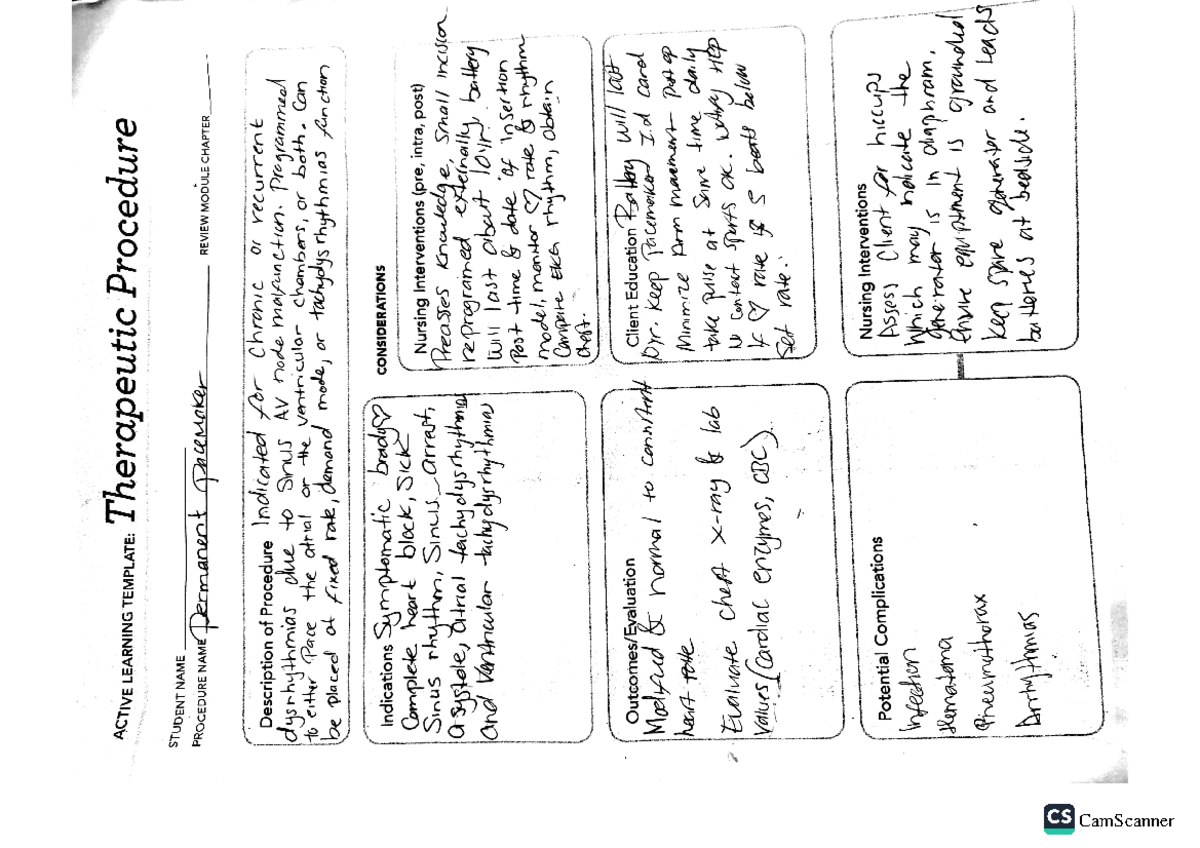 ACTIVE LEARNING TEMPLATE: Therapeutic Procedure
STUDENT NAME
PROCEDURE NAME Permanent Pacemaker REVIEW MODULE CHAPTER
Description of Procedure Indicated for chronic or recurrent
dysrhythmias due to Sinus AV node malfunction. Programmed
to either Pace the atrial or the ventricular chambers, or both. Can
be placed at fixed rate, demand mode, or tachydysrhythmias function
Indications Symptomatic brady♡
Complete heart block, Sick
Sinus rhythm, Sinus arrest,
asystole, atrial tachydysrhythmia
and Ventricular tachydysrhythmias
CONSIDERATIONS
Nursing Interventions (pre, intra, post)
Preasses Knowledge, small incision
reprogramed externally, battery
will last about 10yr.
Post time & date of insertion
model, monitor ♡ rate & rhythm
Compare EKG rhythm, obtain
Chest.
Outcomes/Evaluation
& normal to
heart rate
Evaluate chest x-ray & lab
values (Cardiac enzymes, CBC)
Client Education Battery will last
10yr. Keep Pacemaker I.d card
Minimize Arm movement post op
take pulse at same time daily
No contact sports OK. Notify HCP
if ♡ rate is 5 beats below
Set rate.
Potential Complications
Infection
Hematoma
Pneumothorax
Arrhythmias
Nursing Interventions
Assess Client for hiccups
which may indicate the
generator is in diaphram.
equiptment is grounded
Keep spare generator and leads
batteries at bedside.
CS CamScanner